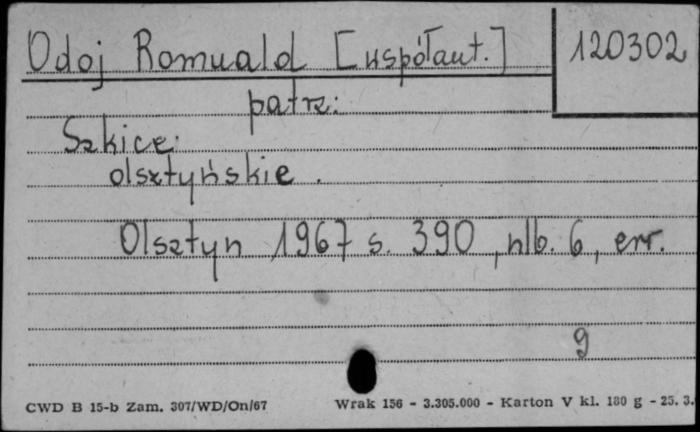 Odoj Romuald [współaut.] 120302
patrz:
Szkice
olsztyńskie.
Olsztyn 1967 s. 390, nlb. 6, err.
g
CWD B 15-b Zam. 307/WD/On/67 Wrak 156 - 3.305.000 - Karton V kl. 180 g - 25. 3.